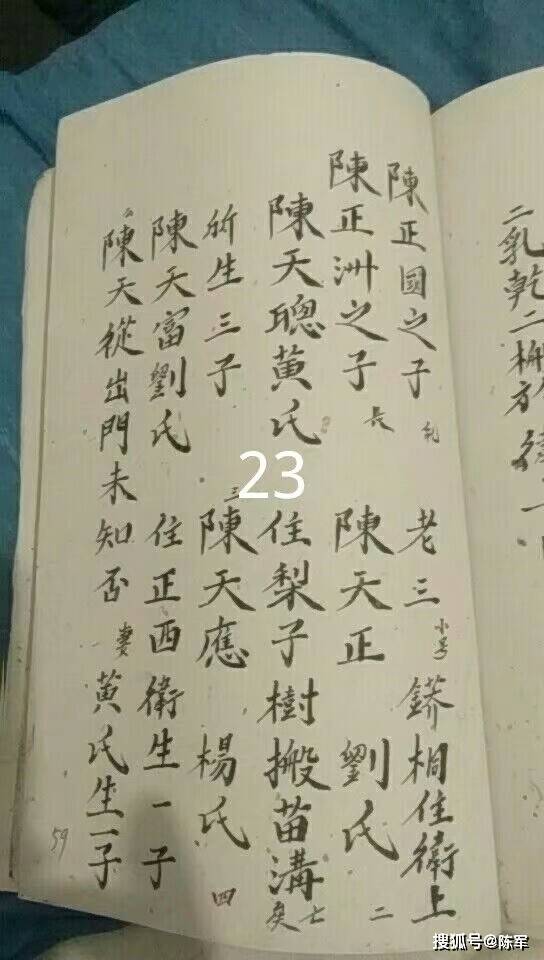 二乳乾二
陳正國之子 老三 小号 鏻桐住衛上
陳正洲之子 長 陳天正 劉氏 二
陳天聰黃氏 住梨子樹搬苗溝 七
所生三子 三 陳天應 楊氏 四
陳天富劉氏 住正西衛生一子
陳天從出門未知否 妻黃氏生一子
59
23
搜狐号@陈军